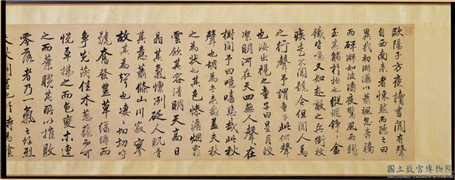 歐陽子方夜讀書聞有聲
自西南來者悚然而聽之曰
異哉初淅瀝以蕭颯忽奔騰
而砰湃如波濤夜驚風雨驟
至其觸於物也鏦鏦錚錚金
鐵皆鳴又如赴敵之兵銜枚
疾走不聞號令但聞人馬
之行聲予謂童子此何聲
也汝出視之童子曰星月皎
潔明河在天四無人聲聲在
樹間予曰噫嘻悲哉此秋
聲也胡為乎來哉蓋夫秋
之為狀也其色慘淡煙霏
雲斂其容清明天高日
晶其氣慄冽砭人肌骨
其意蕭條山川寂寥
故其為聲也淒淒切切呼
號奮發豐草綠縟而
爭茂佳木葱蘢而可
悅草拂之而色變木遭
之而葉脫其所以摧敗
零落者乃一氣之餘烈
夫秋刑官也於時為陰
國立故宮博物院